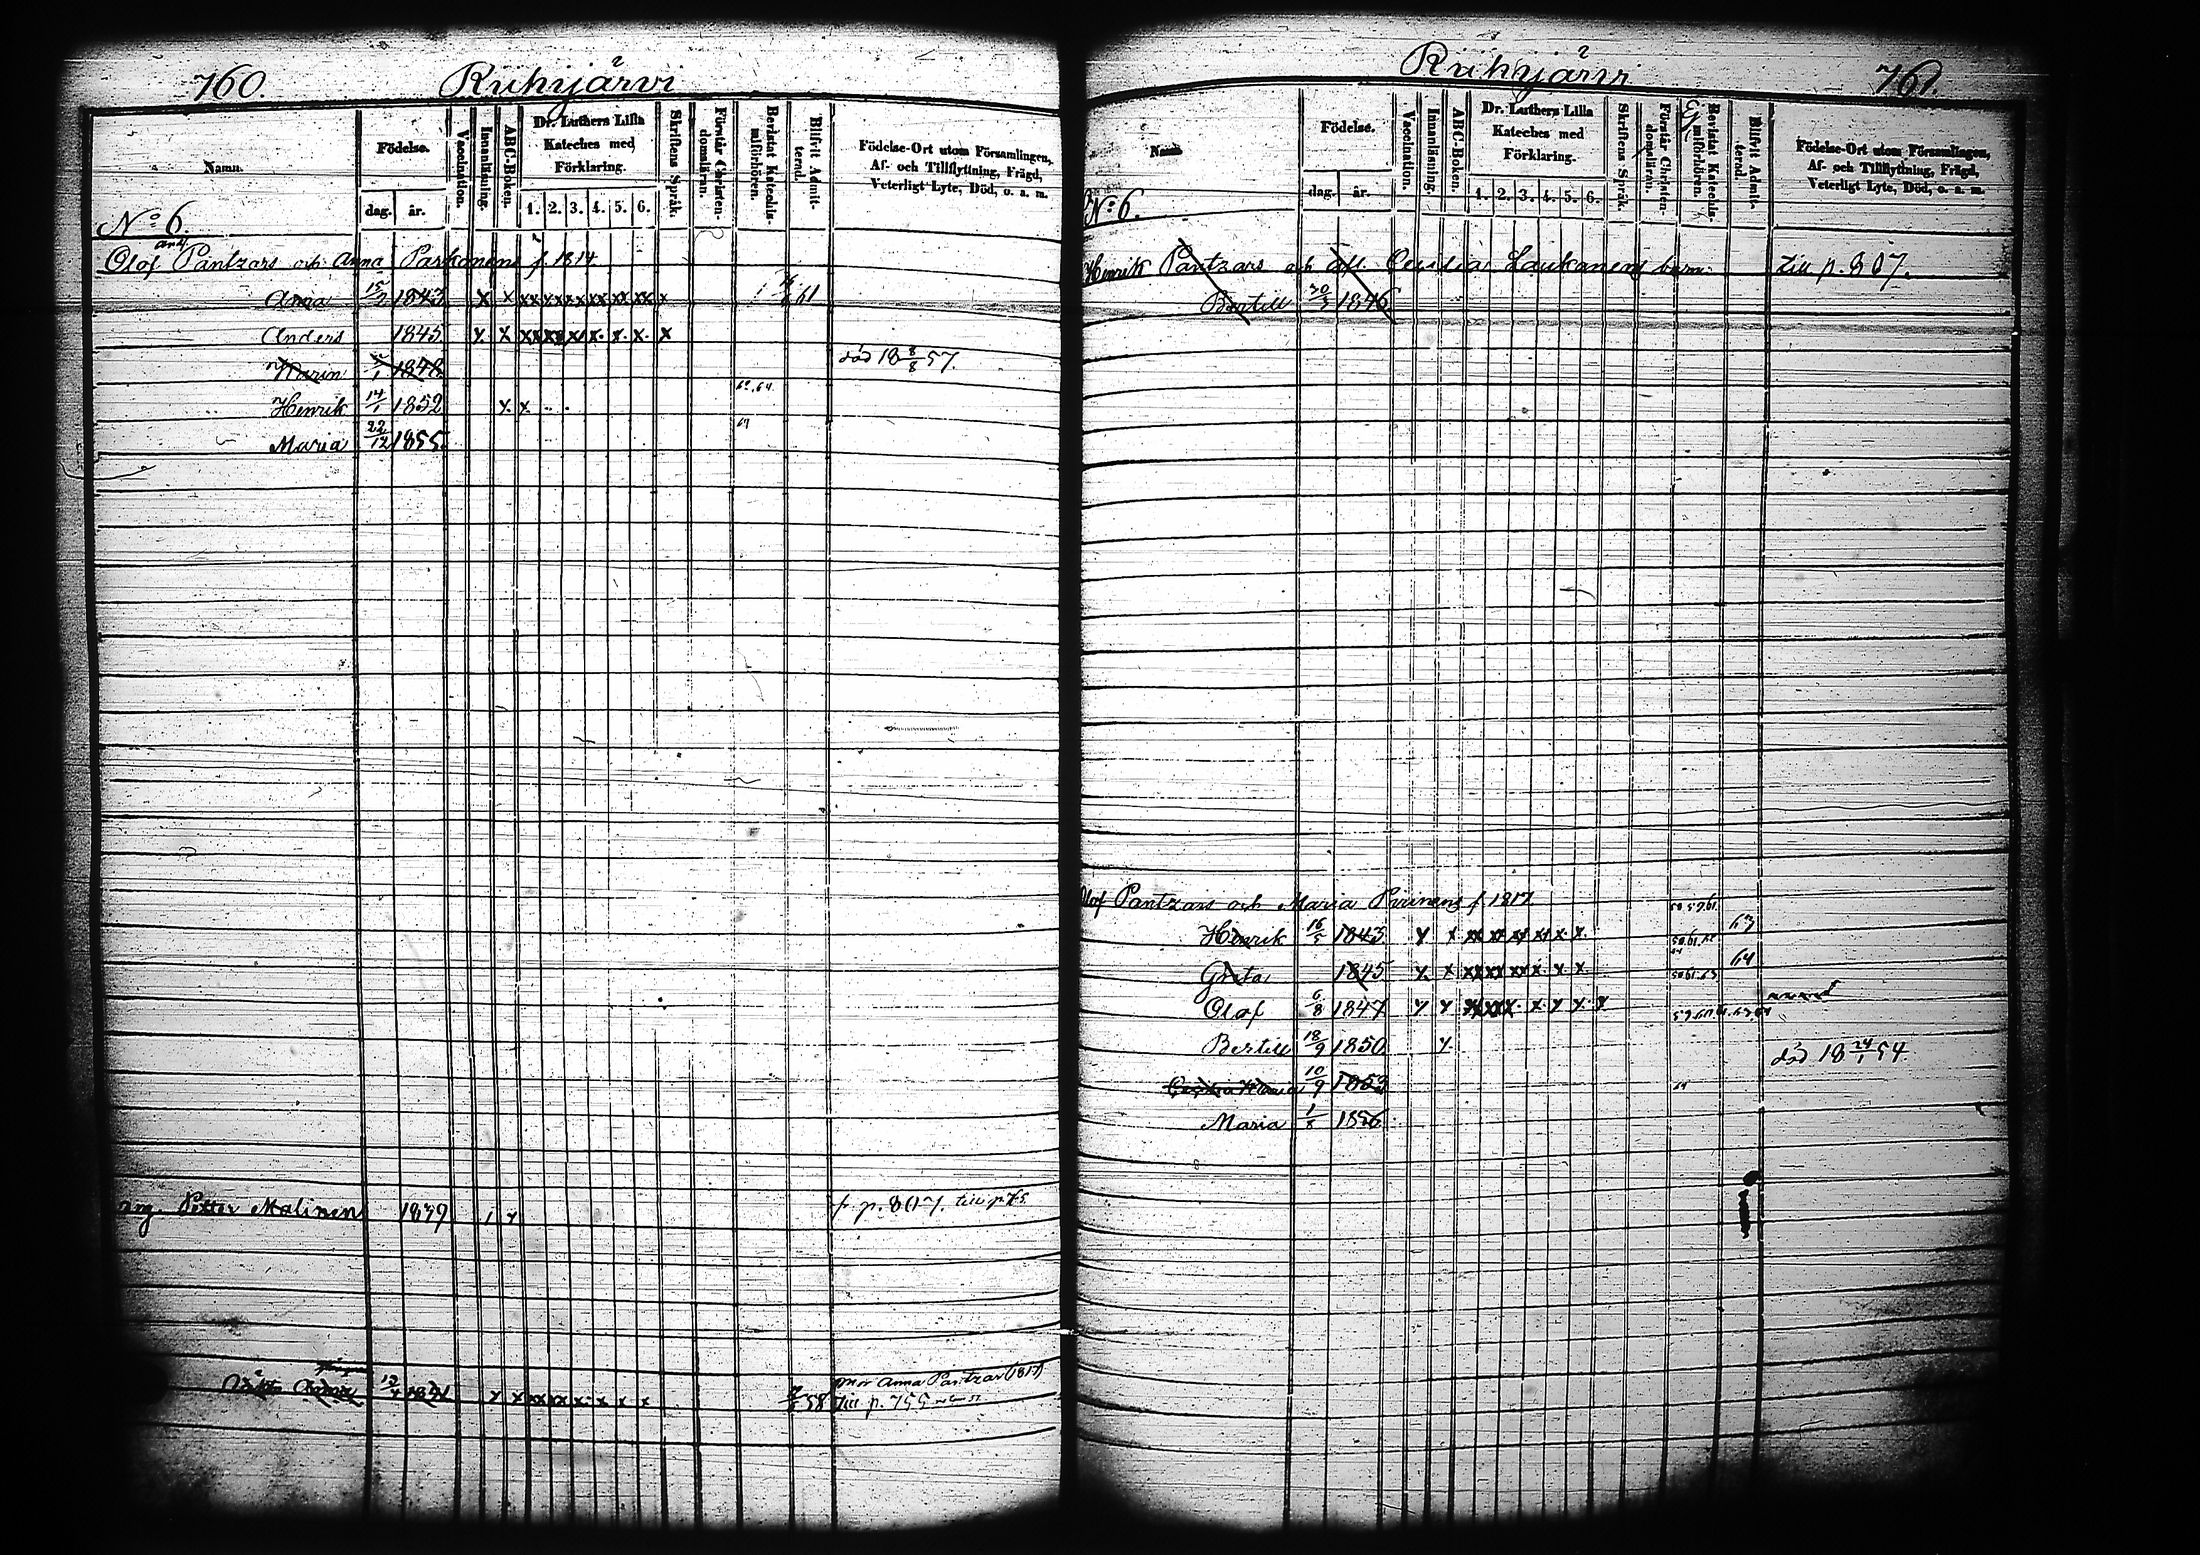 760. Ruhyjärvi
Namn.
Födelse.
dag. år.
Vaccination.
Innanläsning.
ABC-Boken.
Dr. Luthers Lilla
Kateches med
Förklaring.
1. 2. 3. 4. 5. 6.
Skriftens Språk.
Förstår Christen-
domsläran.
Bevistat Katechis-
miförhören.
Blifvit Admit-
terad.
Födelse-Ort utom Församlingen,
Af- och Tillflyttning, Frägd,
Veterligt Lyte, Död, o. a. m.
No 6.
Olof Pantzars och Anna Parkonens f. 1814
Anna 15/2 1843 x x xx xx xx xx xx xx x 61
Anders 1845 x x xx xx xx x. x. x. x
Maria 1/1 1848 död 18 8/8 57.
Henrik 14/1 1852 x x 62. 64.
Maria 22/12 1855 64
Petter Malinen 1849 f. p. 807. till p. 75
Anna 12/4 1841 x x xx xx x x x x 58 mor Anna Pantzar (1817)
till p. 755
Ruhyjärvi 761.
Namn
Födelse.
dag. år.
Vaccination.
Innanläsning.
ABC-Boken.
Dr. Luthers Lilla
Kateches med
Förklaring.
1. 2. 3. 4. 5. 6.
Skriftens Språk.
Förstår Christen-
domsläran.
Bevistat Katechis-
miförhören.
Blifvit Admit-
terad.
Födelse-Ort utom Församlingen,
Af- och Tillflyttning, Frägd,
Veterligt Lyte, Död, o. a. m.
No 6.
Henrik Pantzars och Cecilia Laukanens barn. till p. 807.
Bertill 30/3 1846
Olof Pantzars och Maria Piirinens f. 1817
Henrik 16/5 1843 x x xx xx xx xx x. x. 63
Greta 1845 x x xx xx xx x. x x. 64
Olof 6/8 1847 x x xx xx x. x x x. x
Bertill 18/9 1850 x
10/9 1853 död 18 24/1 54.
Maria 1/8 1856